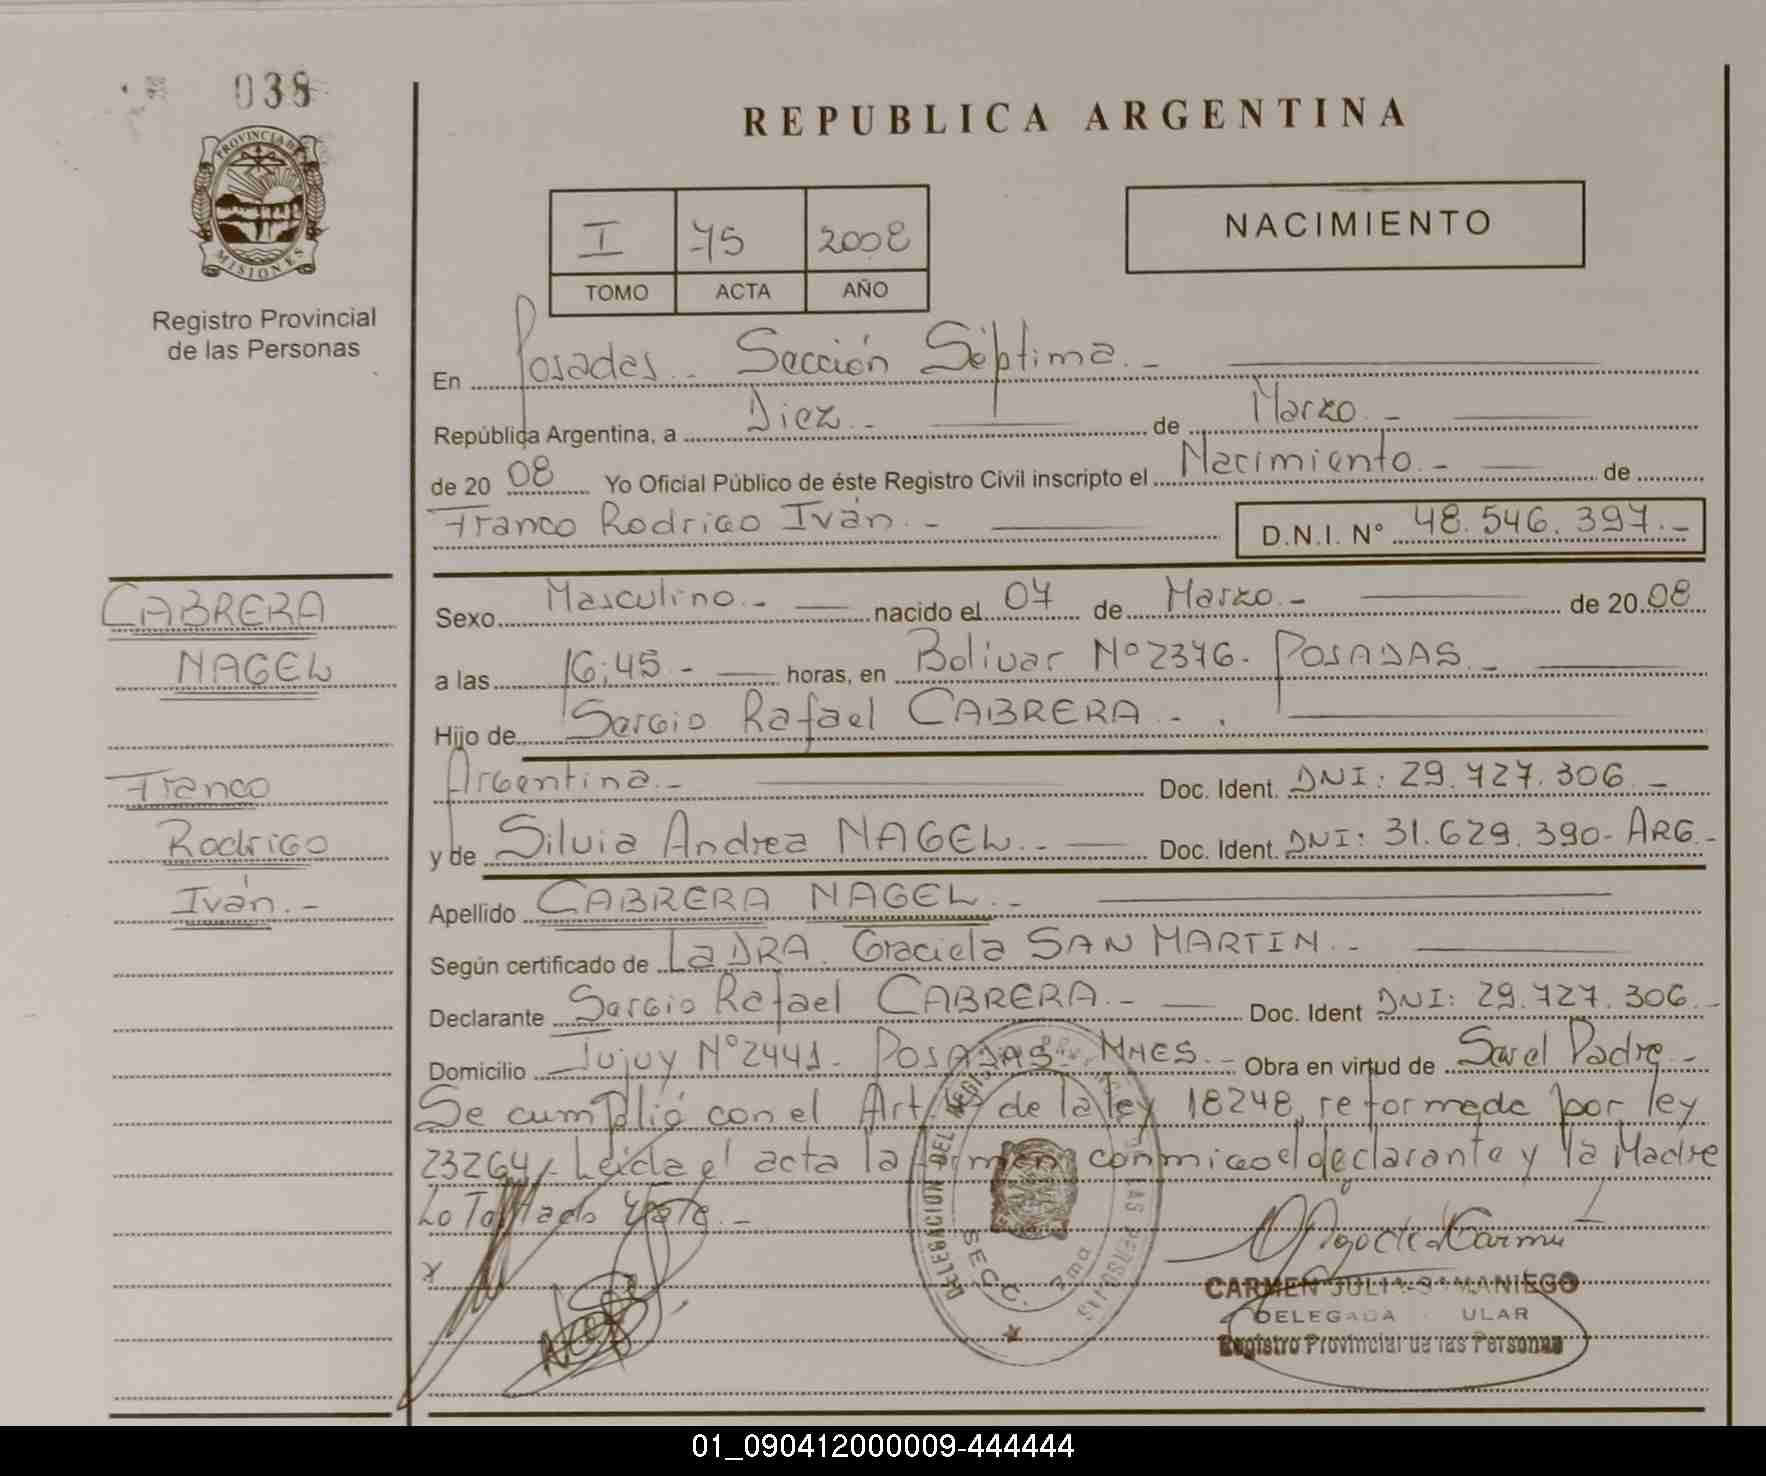 038
PROVINCIA DE
MISIONES
Registro Provincial
de las Personas
REPUBLICA ARGENTINA
I 75 2008
TOMO ACTA AÑO
NACIMIENTO
En Posadas.. Sección Séptima.-
República Argentina, a Diez.- de Marzo.-
de 20 08 Yo Oficial Público de éste Registro Civil inscripto el Nacimiento.- de
Franco Rodrigo Iván.- D.N.I. N° 48.546.397.-
CABRERA
NAGEL
Franco
Rodrigo
Iván.-
Sexo Masculino.- nacido el 07 de Marzo.- de 20 08
a las 16:45.- horas, en Bolivar N° 2376. POSADAS.-
Hijo de Sergio Rafael CABRERA.-
Argentina.- Doc. Ident. DNI: 29.727.306.-
y de Silvia Andrea NAGEL.- Doc. Ident. DNI: 31.629.390- ARG.-
Apellido CABRERA NAGEL.-
Según certificado de La DRA. Graciela SAN MARTIN.-
Declarante Sergio Rafael CABRERA.- Doc. Ident DNI: 29.727.306.-
Domicilio Jujuy N° 2441- POSADAS- MNES.- Obra en virtud de Ser el Padre.-
Se cumplió con el Art. de la ley 18248, reformada por ley
23264,- Leida el acta la firman conmigo el declarante y la Madre
Lo Testado
x
DELEGACION DEL LAS PERSONAS
SECC. 7ma
CARMEN JULIA SAMANIEGO
DELEGADA ULAR
Registro Provincial de las Personas
01_090412000009-444444